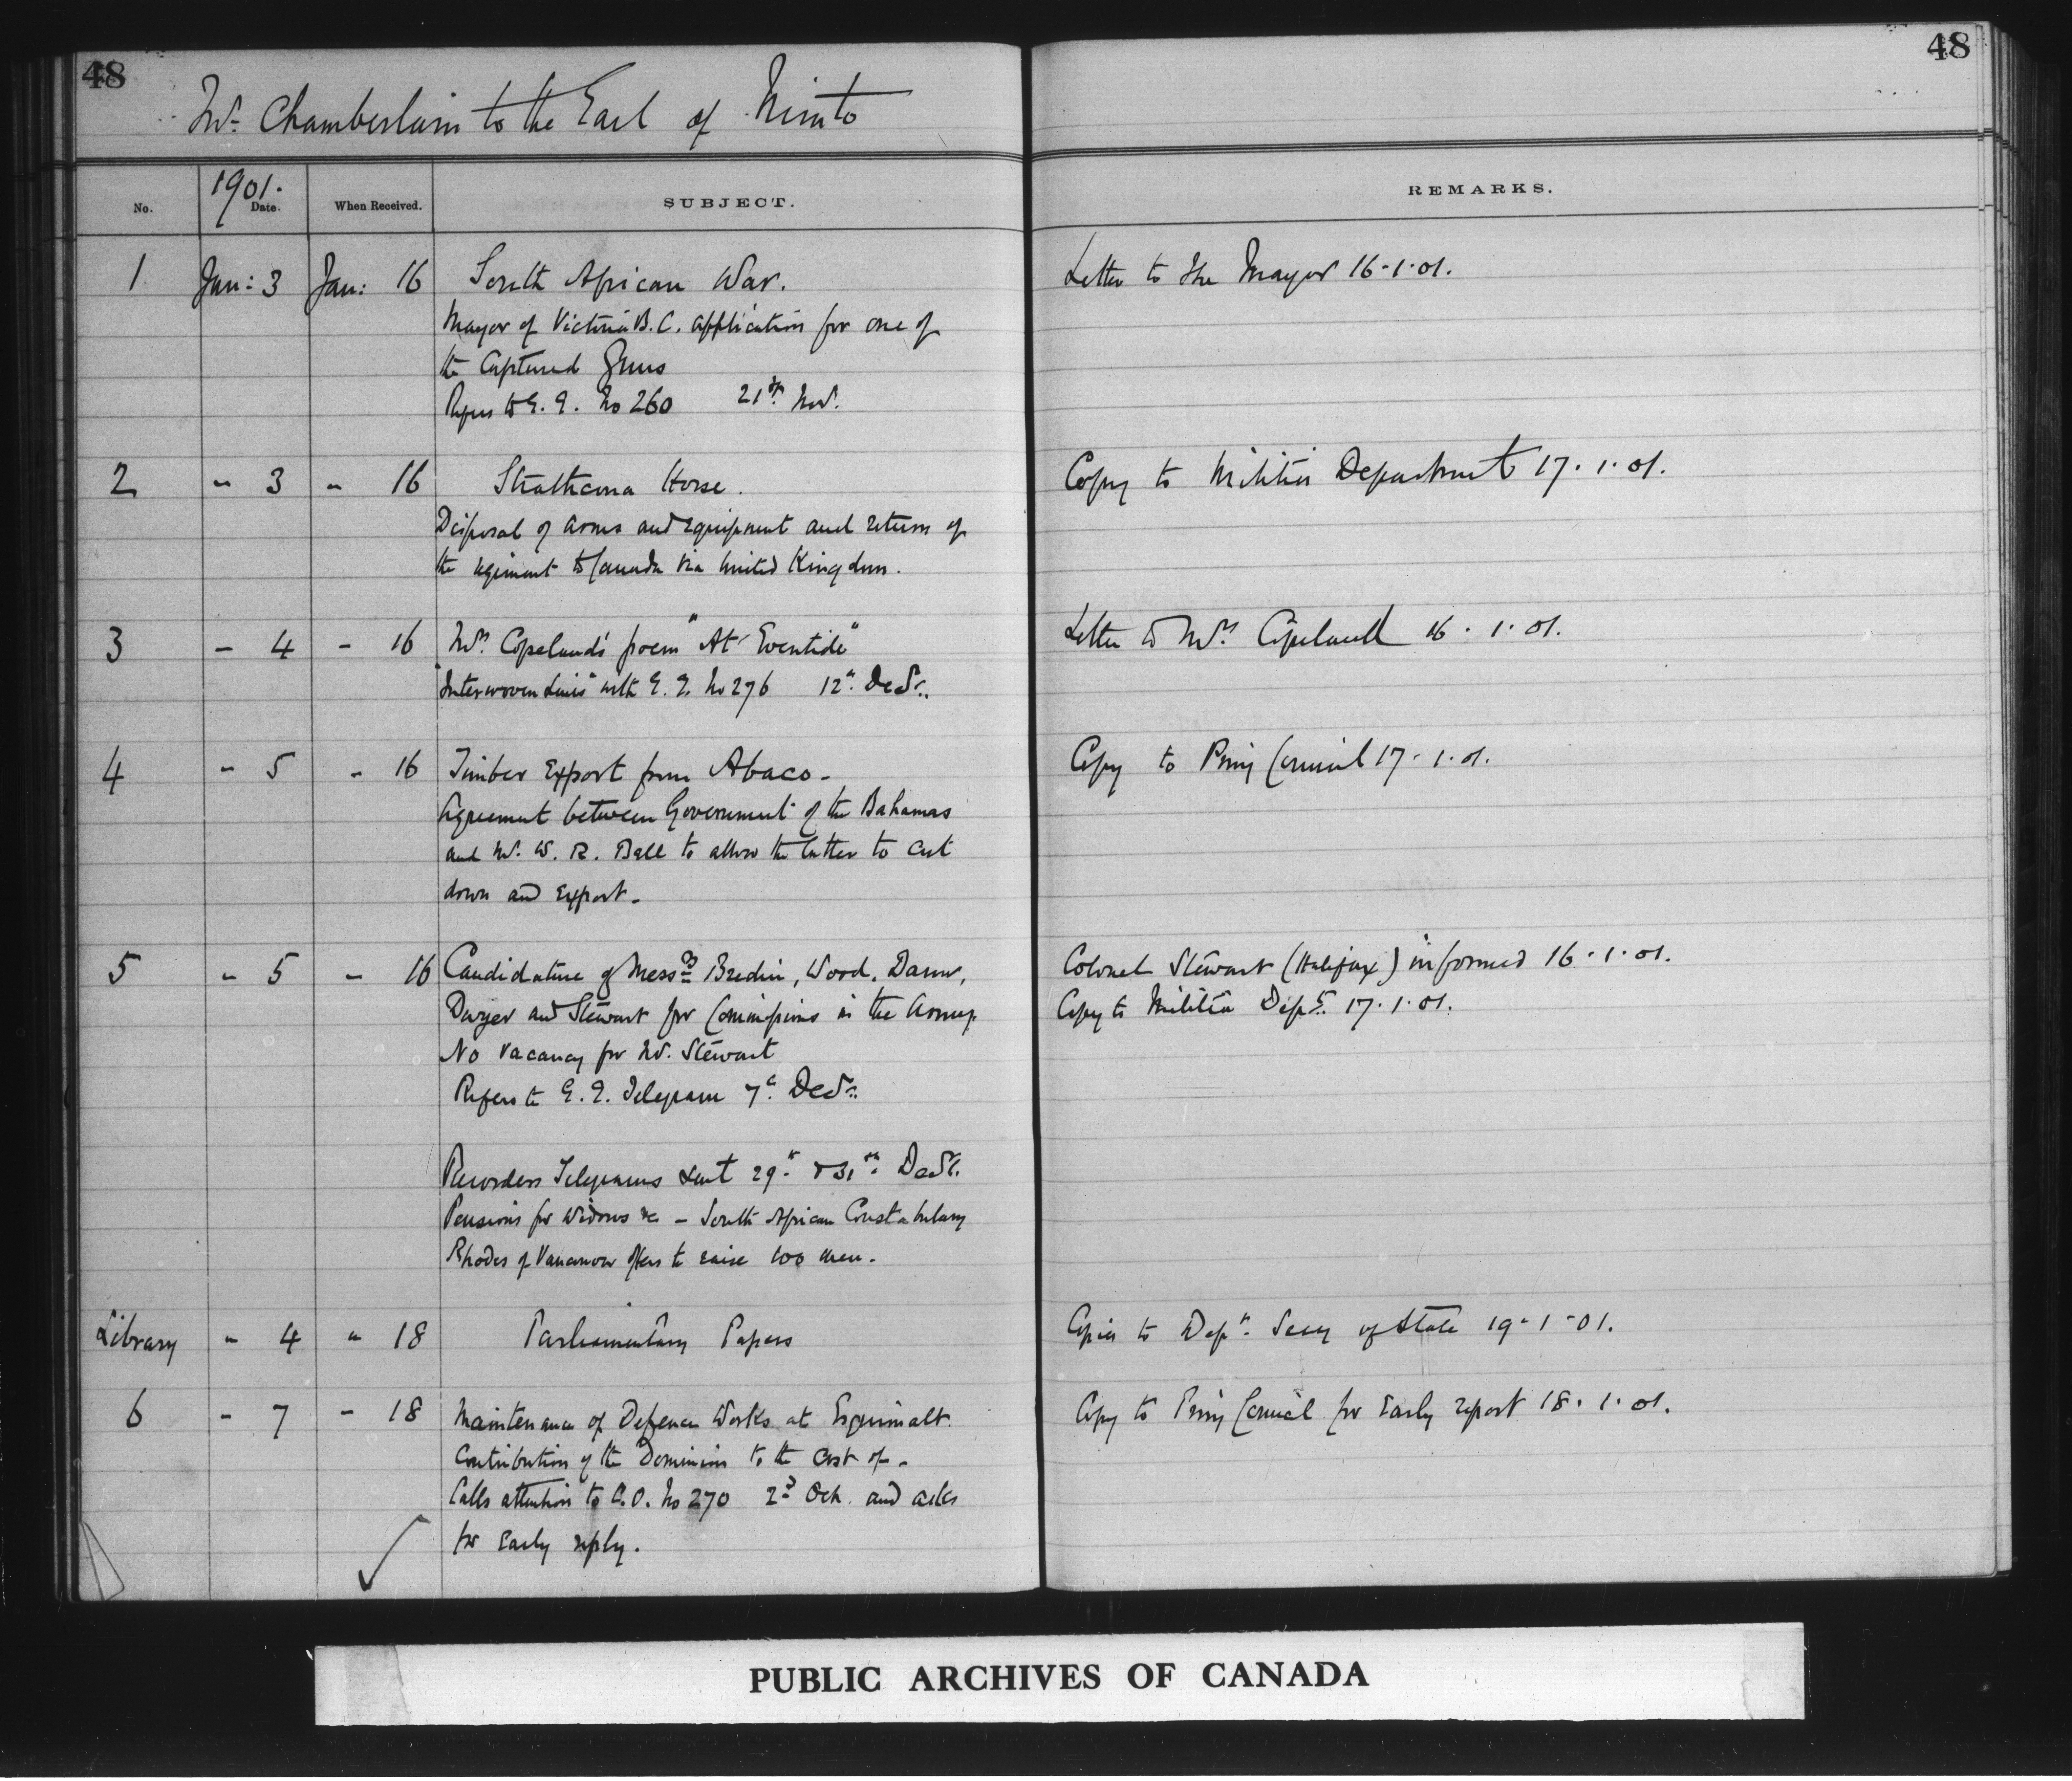 48
48
Mr. Chamberlain to the Earl of Minto
No.
1901.
Date.
When Received.
SUBJECT.
REMARKS.
1 Jan: 3 Jan: 16 South African War. Letter to the Mayor 16.1.01.
Mayor of Victoria B.C. application for one of
the Captured Guns
Refers to G.G. No 260 21st Nov.
2 " 3 " 16 Strathcona Horse. Copy to Militia Department 17.1.01.
Disposal of arms and equipment and return of
the regiment to Canada via United Kingdom.
3 - 4 - 16 Mrs. Copeland's poem "At Eventide" Letter to Mrs. Copeland 16.1.01.
"Interwoven Lines" with G.G. No 276 12th Decr.
4 - 5 - 16 Timber Export from Abaco - Copy to Privy Council 17.1.01.
Agreement between Government of the Bahamas
and Mr. W. R. Ball to allow the latter to cut
down and export -
5 - 5 - 16 Candidature of Messrs Bredin, Wood, Colonel Stewart (Halifax) informed 16.1.01.
Dwyer and Stewart for Commissions in the Army. Copy to Militia Dept. 17.1.01.
No vacancy for Mr. Stewart
Refers to G.G. Telegram 7th Decr.
Recorders Telegrams sent 29th & 31st Decr.
Pensions for Widows &c - South African Constabulary
Rhodes of Vancouver offers to raise 100 men -
Library " 4 " 18 Parliamentary Papers Copies to Secy of State 19-1-01.
6 - 7 - 18 Maintenance of Defence Works at Esquimalt. Copy to Privy Council for Early report 18.1.01.
Contribution of the Dominion to the cost of -
Calls attention to C.O. No 270 2nd Oct. and asks
for Early reply.
PUBLIC ARCHIVES OF CANADA